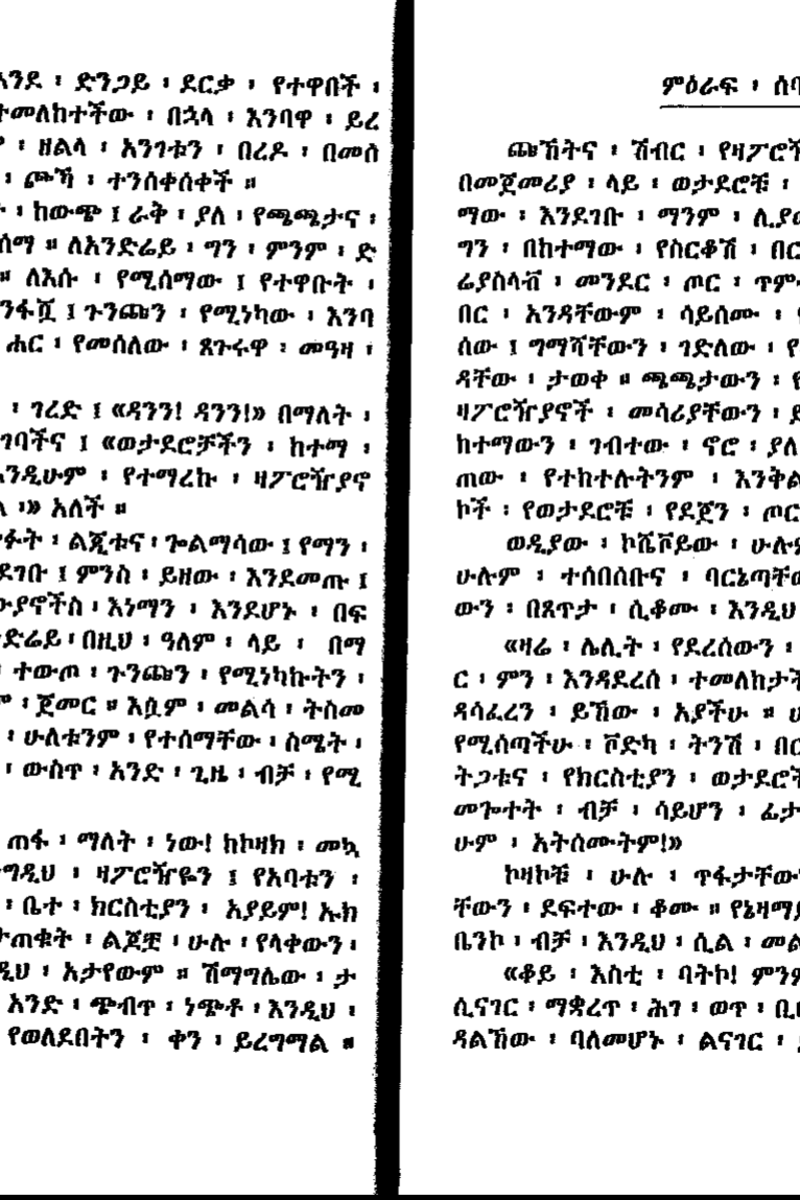 ድንጋይ ፡ ደርቃ ፡ የተዋበች ፡
ተመለከተችው ፡ በኋላ ፡ እንባዋ ፡ ይረ
ዘልላ ፡ አንገቱን ፡ በረዶ ፡ በመሰ
፡ ጮኻ ፡ ተንሰቀሰቀች ።
፡ ከውጭ ፤ ራቅ ፡ ያለ ፡ የጫጫታና ፡
ሰማ ። ለአንድሬይ ፡ ግን ፡ ምንም ፡ ድ
። ለእሱ ፡ የሚሰማው ፤ የተዋቡት ፡
ንፋሿ ፤ ጉንጩን ፡ የሚነካው ፡ እንባ
ሐር ፡ የመሰለው ፡ ጸጉሩዋ ፡ መዓዛ ፡
፡ ገረድ ፤ «ዳንን! ዳንን!» በማለት ፡
ገባችና ፤ «ወታደሮቻችን ፡ ከተማ ፡
እንዲሁም ፡ የተማረኩ ፡ ዛፖሮዥያኖ
፡» አለች ።
ልጂቱና ፡ ጐልማሳው ፤ የማን ፡
ደገቡ ፤ ምንስ ፡ ይዘው ፡ እንደመጡ ፤
ያኖችስ ፡ እነማን ፡ እንደሆኑ ፡ በፍ
ድሬይ ፡ በዚህ ፡ ዓለም ፡ ላይ ፡ በማ
ተውጦ ፡ ጉንጩን ፡ የሚነካኩትን ፡
፡ ጀመር ። እሷም ፡ መልሳ ፡ ትስመ
፡ ሁለቱንም ፡ የተሰማቸው ፡ ስሜት ፡
፡ ውስጥ ፡ አንድ ፡ ጊዜ ፡ ብቻ ፡ የሚ
ጠፋ ፡ ማለት ፡ ነው! ከኮዛክ ፡ መኳ
ግዲህ ፡ ዛፖሮዥዬን ፤ የአባቱን ፡
፡ ቤተ ፡ ክርስቲያን ፡ አያይም! ኡክ
ታጠቁት ፡ ልጆቿ ፡ ሁሉ ፡ የላቀውን ፡
ዲህ ፡ አታየውም ። ሽማግሌው ፡ ታ
አንድ ፡ ጭብጥ ፡ ነጭቶ ፡ እንዲህ ፡
የወለደበትን ፡ ቀን ፡ ይረግማል ።
ምዕራፍ ፡ ሰባ
ጩኸትና ፡ ሽብር ፡ የዛፖሮዥ
በመጀመሪያ ፡ ላይ ፡ ወታደሮቹ ፡
ማው ፡ እንደገቡ ፡ ማንም ፡ ሊያ
ግን ፡ በከተማው ፡ የስርቆሽ ፡ በር
ሬያስላቭ ፡ መንደር ፡ ጦር ፡ ጥም
በር ፡ አንዳቸውም ፡ ሳይሰሙ ፡
ሰው ፤ ግማሻቸውን ፡ ገድለው ፡ የ
ዳቸው ፡ ታወቀ ። ጫጫታውን ፡
ዛፖሮዥያኖች ፡ መሳሪያቸውን ፡
ከተማውን ፡ ገብተው ፡ ኖሮ ፡ ያለ
ጠው ፡ የተከተሉትንም ፡ እንቅል
ኮች ፡ የወታደሮቹ ፡ የደጀን ፡ ጦር
ወዲያው ፡ ኮሼቮይው ፡ ሁሉ
ሁሉም ፡ ተሰበሰቡና ፡ ባርኔጣቸ
ውን ፡ በጸጥታ ፡ ሲቆሙ ፡ እንዲህ
«ዛሬ ፡ ሌሊት ፡ የደረሰውን ፡
ር ፡ ምን ፡ እንዳደረሰ ፡ ተመለከታች
ዳሳፈረን ፡ ይኸው ፡ አያችሁ ።
የሚሰጣችሁ ፡ ቮድካ ፡ ትንሽ ፡ በር
ትጋቱና ፡ የክርስቲያን ፡ ወታደሮች
መጐተት ፡ ብቻ ፡ ሳይሆን ፡ ፊታ
ሁም ፡ አትሰሙትም!»
ኮዛኮቹ ፡ ሁሉ ፡ ጥፋታቸው
ቸውን ፡ ደፍተው ፡ ቆሙ ። የኔዛማ
ቤንኮ ፡ ብቻ ፡ እንዲህ ፡ ሲል ፡ መል
«ቆይ ፡ እስቲ ፡ ባትኮ! ምንም
ሲናገር ፡ ማቋረጥ ፡ ሕገ ፡ ወጥ ፡
ዳልኸው ፡ ባለመሆኑ ፡ ልናገር ፡